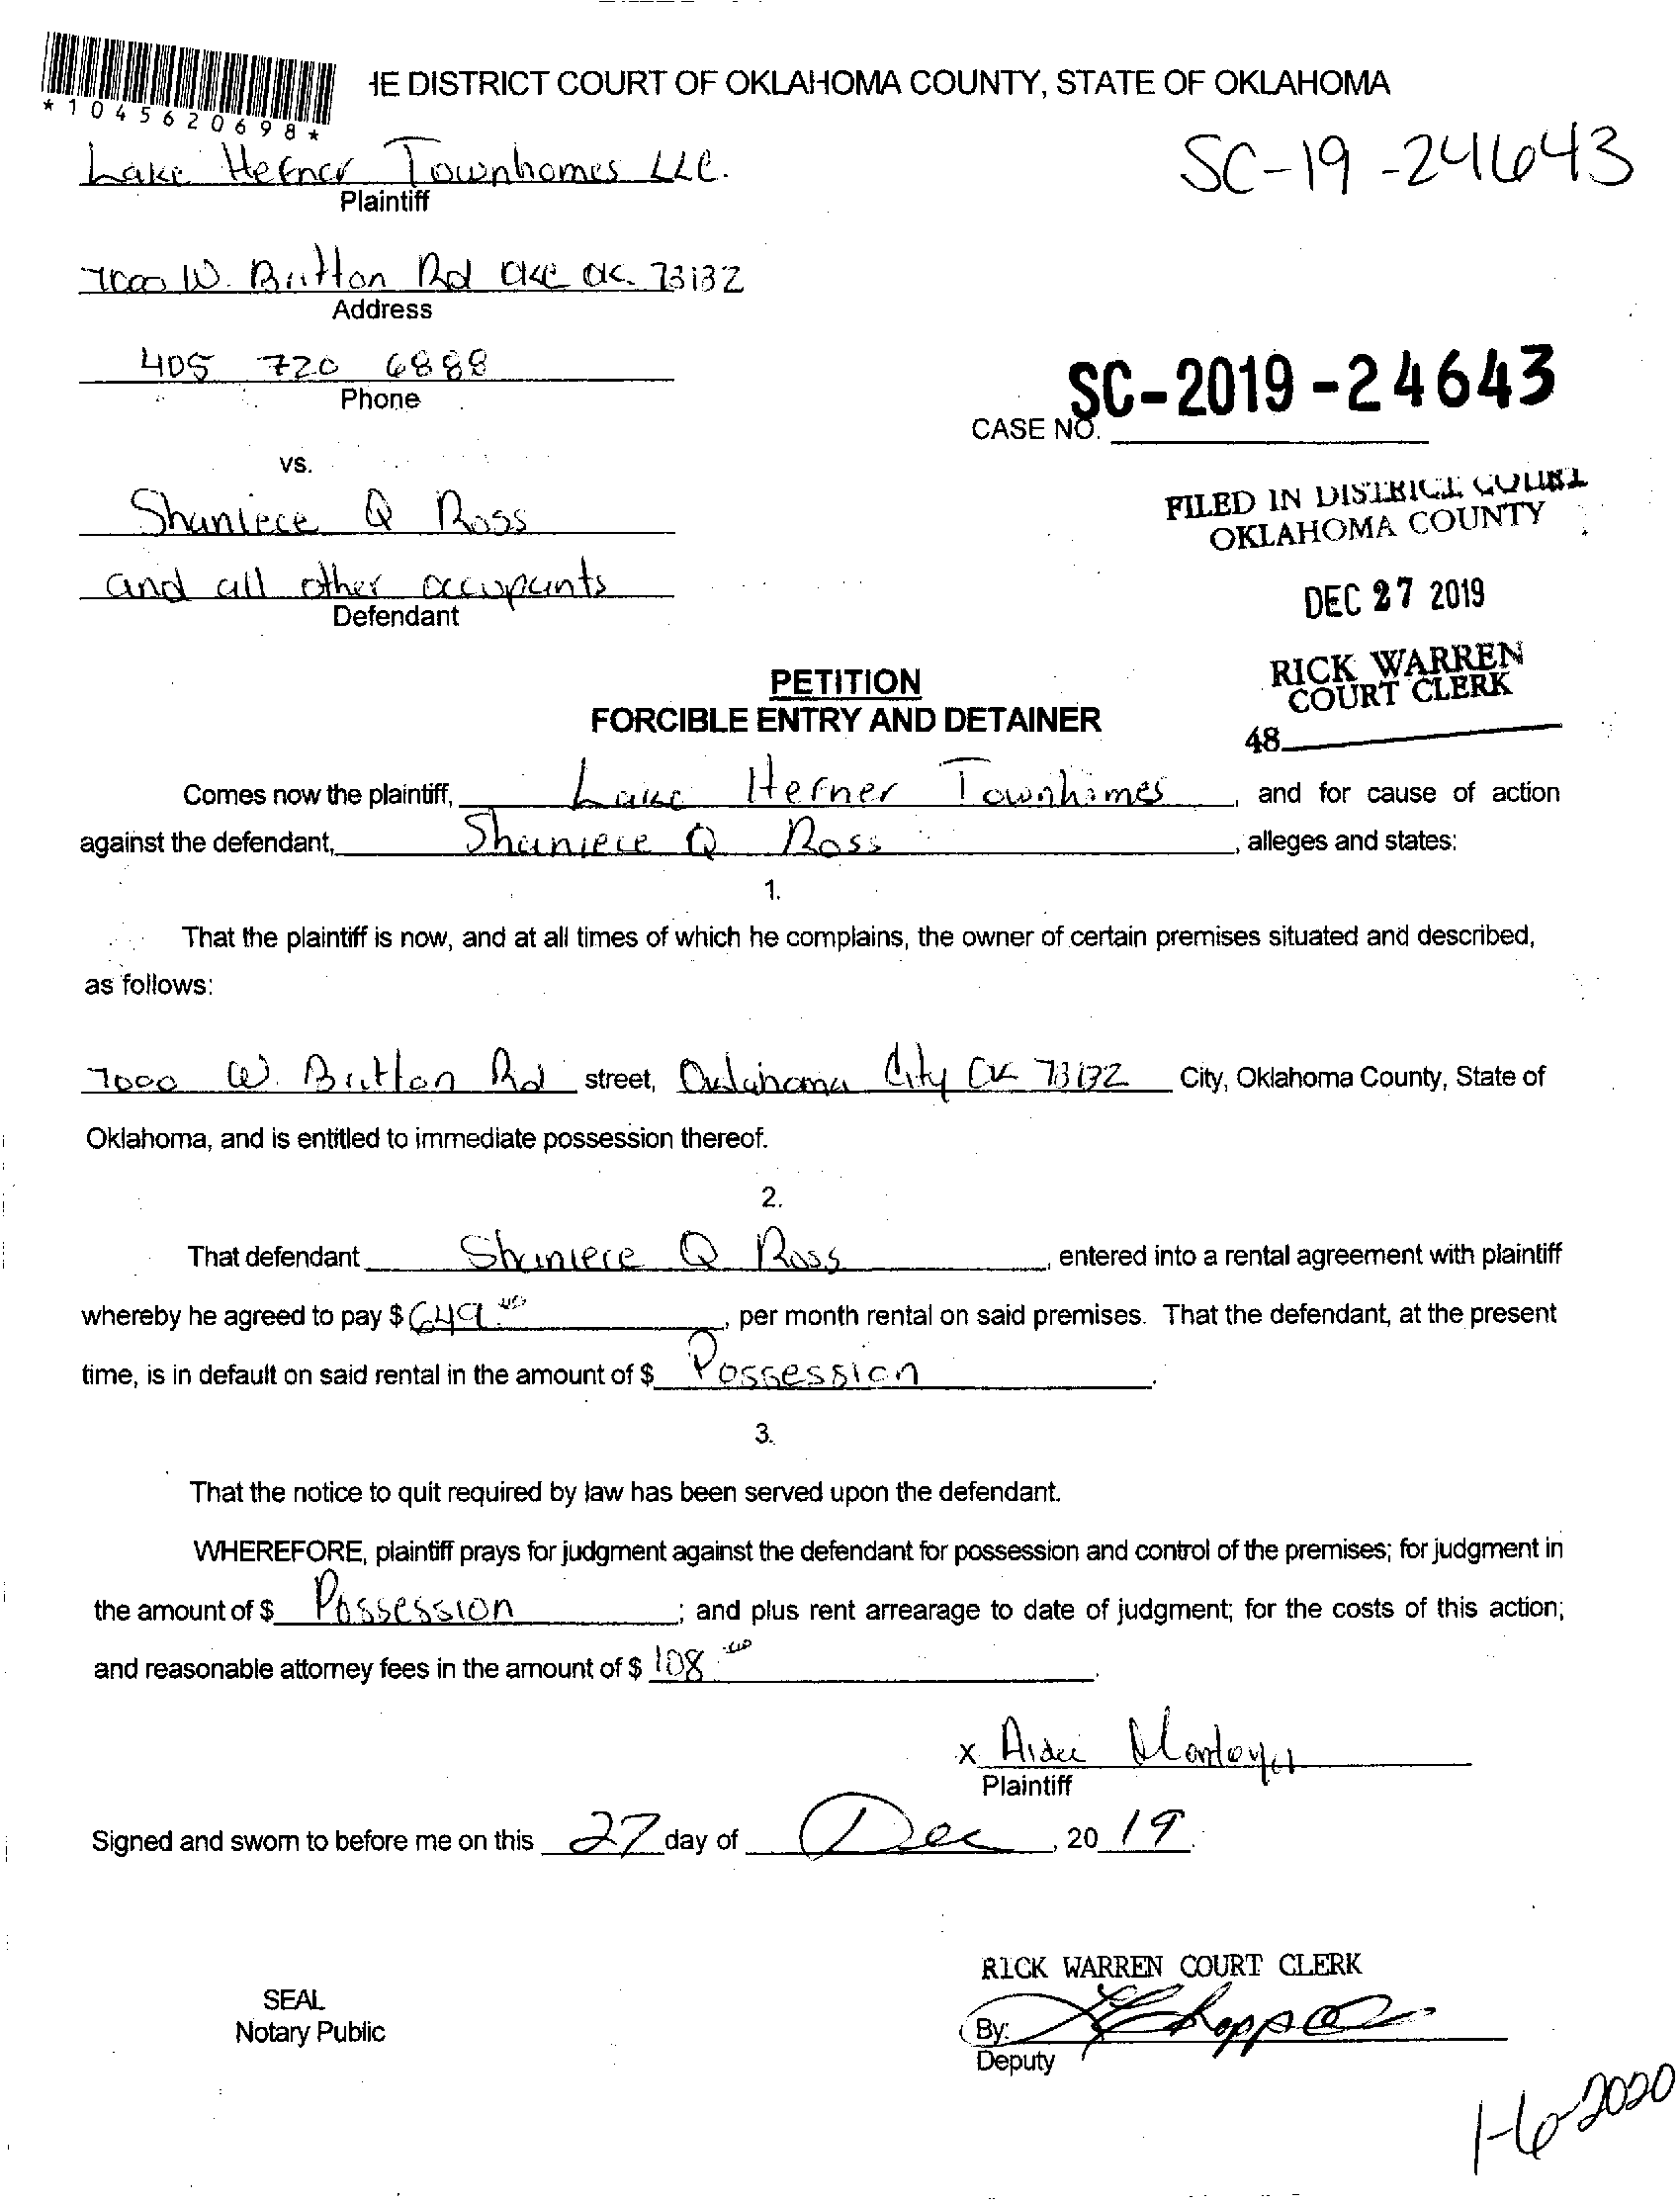 *1045620698*
HE DISTRICT COURT OF OKLAHOMA COUNTY, STATE OF OKLAHOMA
Lake Hefner Townhomes LLC.
Plaintiff
SC-19-24643
7000 W. Britton Rd OKC OK. 73132
Address
405 720 6888
Phone
SC-2019-24643
CASE NO.
vs.
Shaniece Q Ross
and all other occupants
Defendant
FILED IN DISTRICT COURT
OKLAHOMA COUNTY
DEC 27 2019
RICK WARREN
COURT CLERK
48
PETITION
FORCIBLE ENTRY AND DETAINER
Comes now the plaintiff, Lake Hefner Townhomes, and for cause of action
against the defendant, Shaniece Q Ross, alleges and states:
1.
That the plaintiff is now, and at all times of which he complains, the owner of certain premises situated and described,
as follows:
7000 W. Britton Rd street, Oklahoma City OK 73132 City, Oklahoma County, State of
Oklahoma, and is entitled to immediate possession thereof.
2.
That defendant Shaniece Q Ross, entered into a rental agreement with plaintiff
whereby he agreed to pay $ 649.00, per month rental on said premises. That the defendant, at the present
time, is in default on said rental in the amount of $ Possession.
3.
That the notice to quit required by law has been served upon the defendant.
WHEREFORE, plaintiff prays for judgment against the defendant for possession and control of the premises; for judgment in
the amount of $ Possession; and plus rent arrearage to date of judgment; for the costs of this action;
and reasonable attorney fees in the amount of $ 108.00.
x Aidee
Plaintiff
Signed and sworn to before me on this 27 day of Dec, 20 19.
RICK WARREN COURT CLERK
SEAL
Notary Public
By:
Deputy
1-6-2020